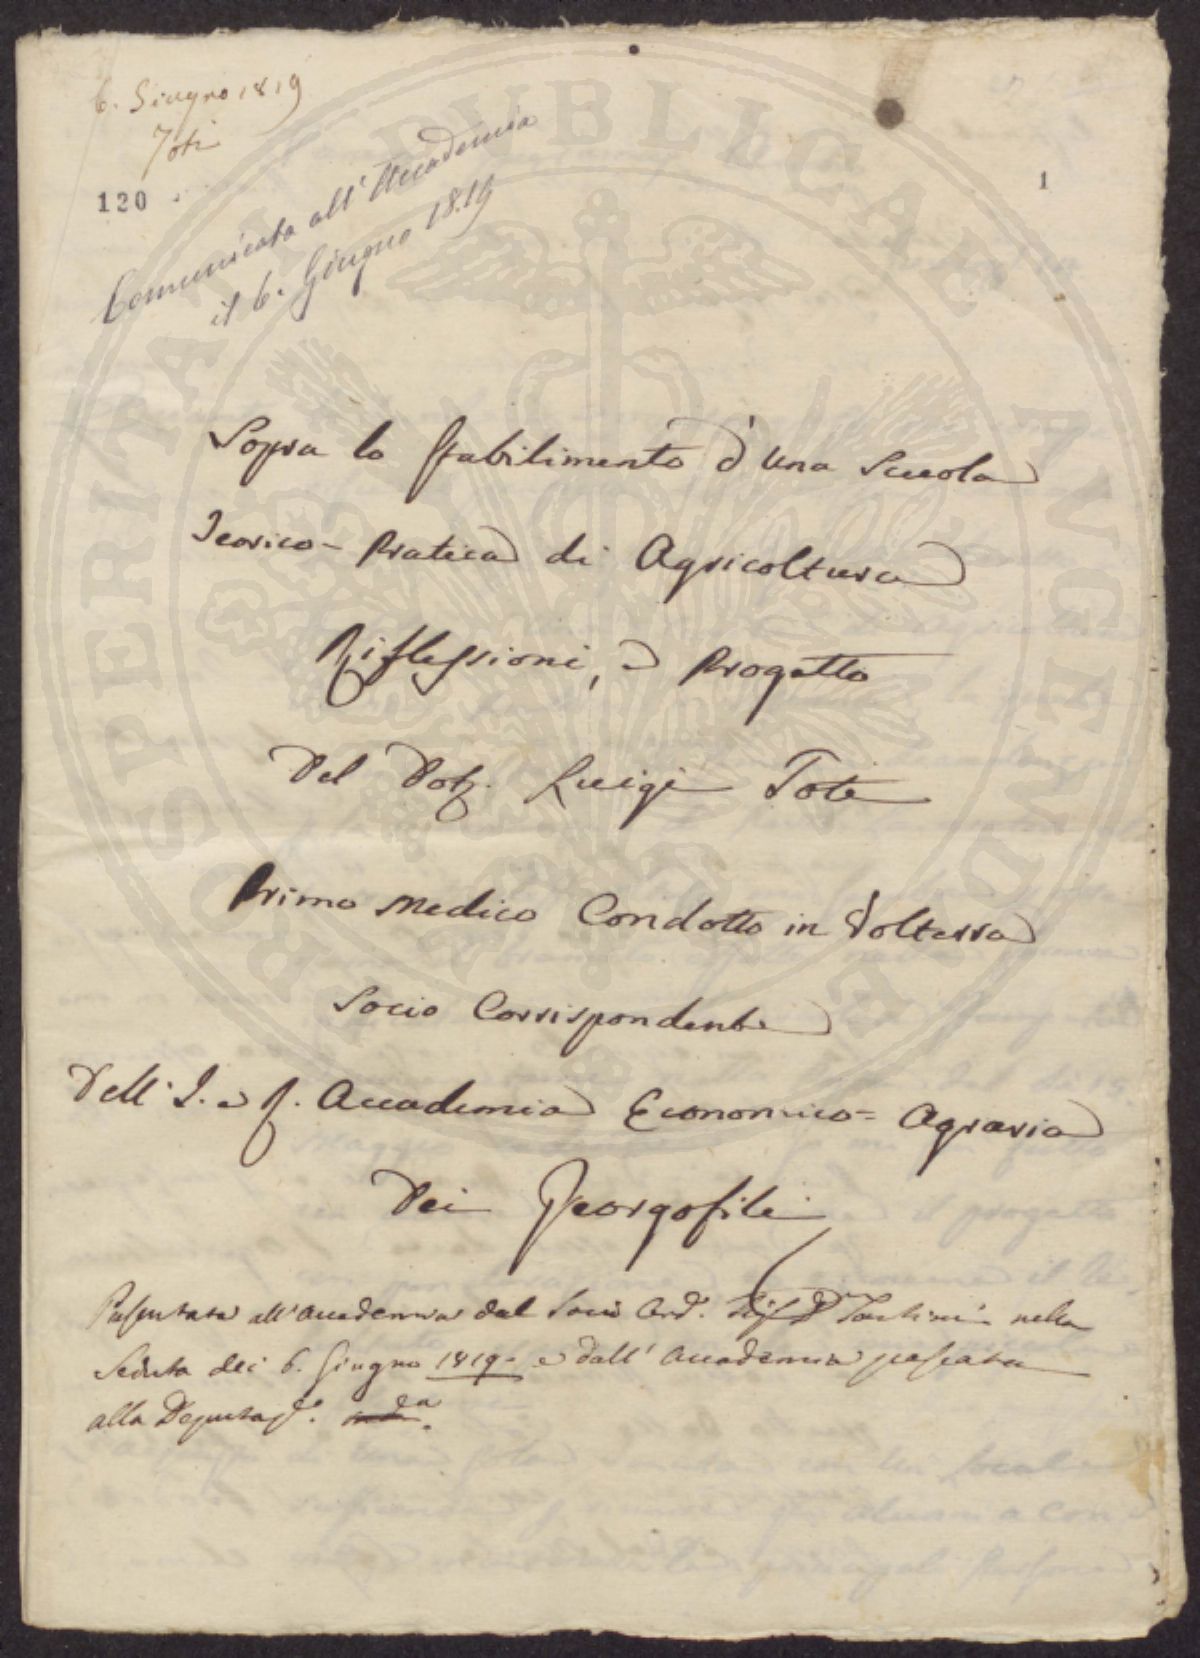 6. Giugno 1819
Toti
120
1
Comunicata all'Accademia
il 6. Giugno 1819
Sopra lo Stabilimento d'una Scuola
Teorico-Pratica di Agricoltura
Riflessioni, e Progetto
Del Dott. Luigi Toti
Primo Medico Condotto in Volterra
Socio Corrispondente
Dell'I. e R. Accademia Economico=Agraria
Dei Georgofili
Presentata all'Accademia dal Socio Ord. Tartini nella
Seduta dei 6. Giugno 1819- e dall'Accademia passata
alla Deputaz.e
PROSPERITATI PUBLICAE AUGENDAE